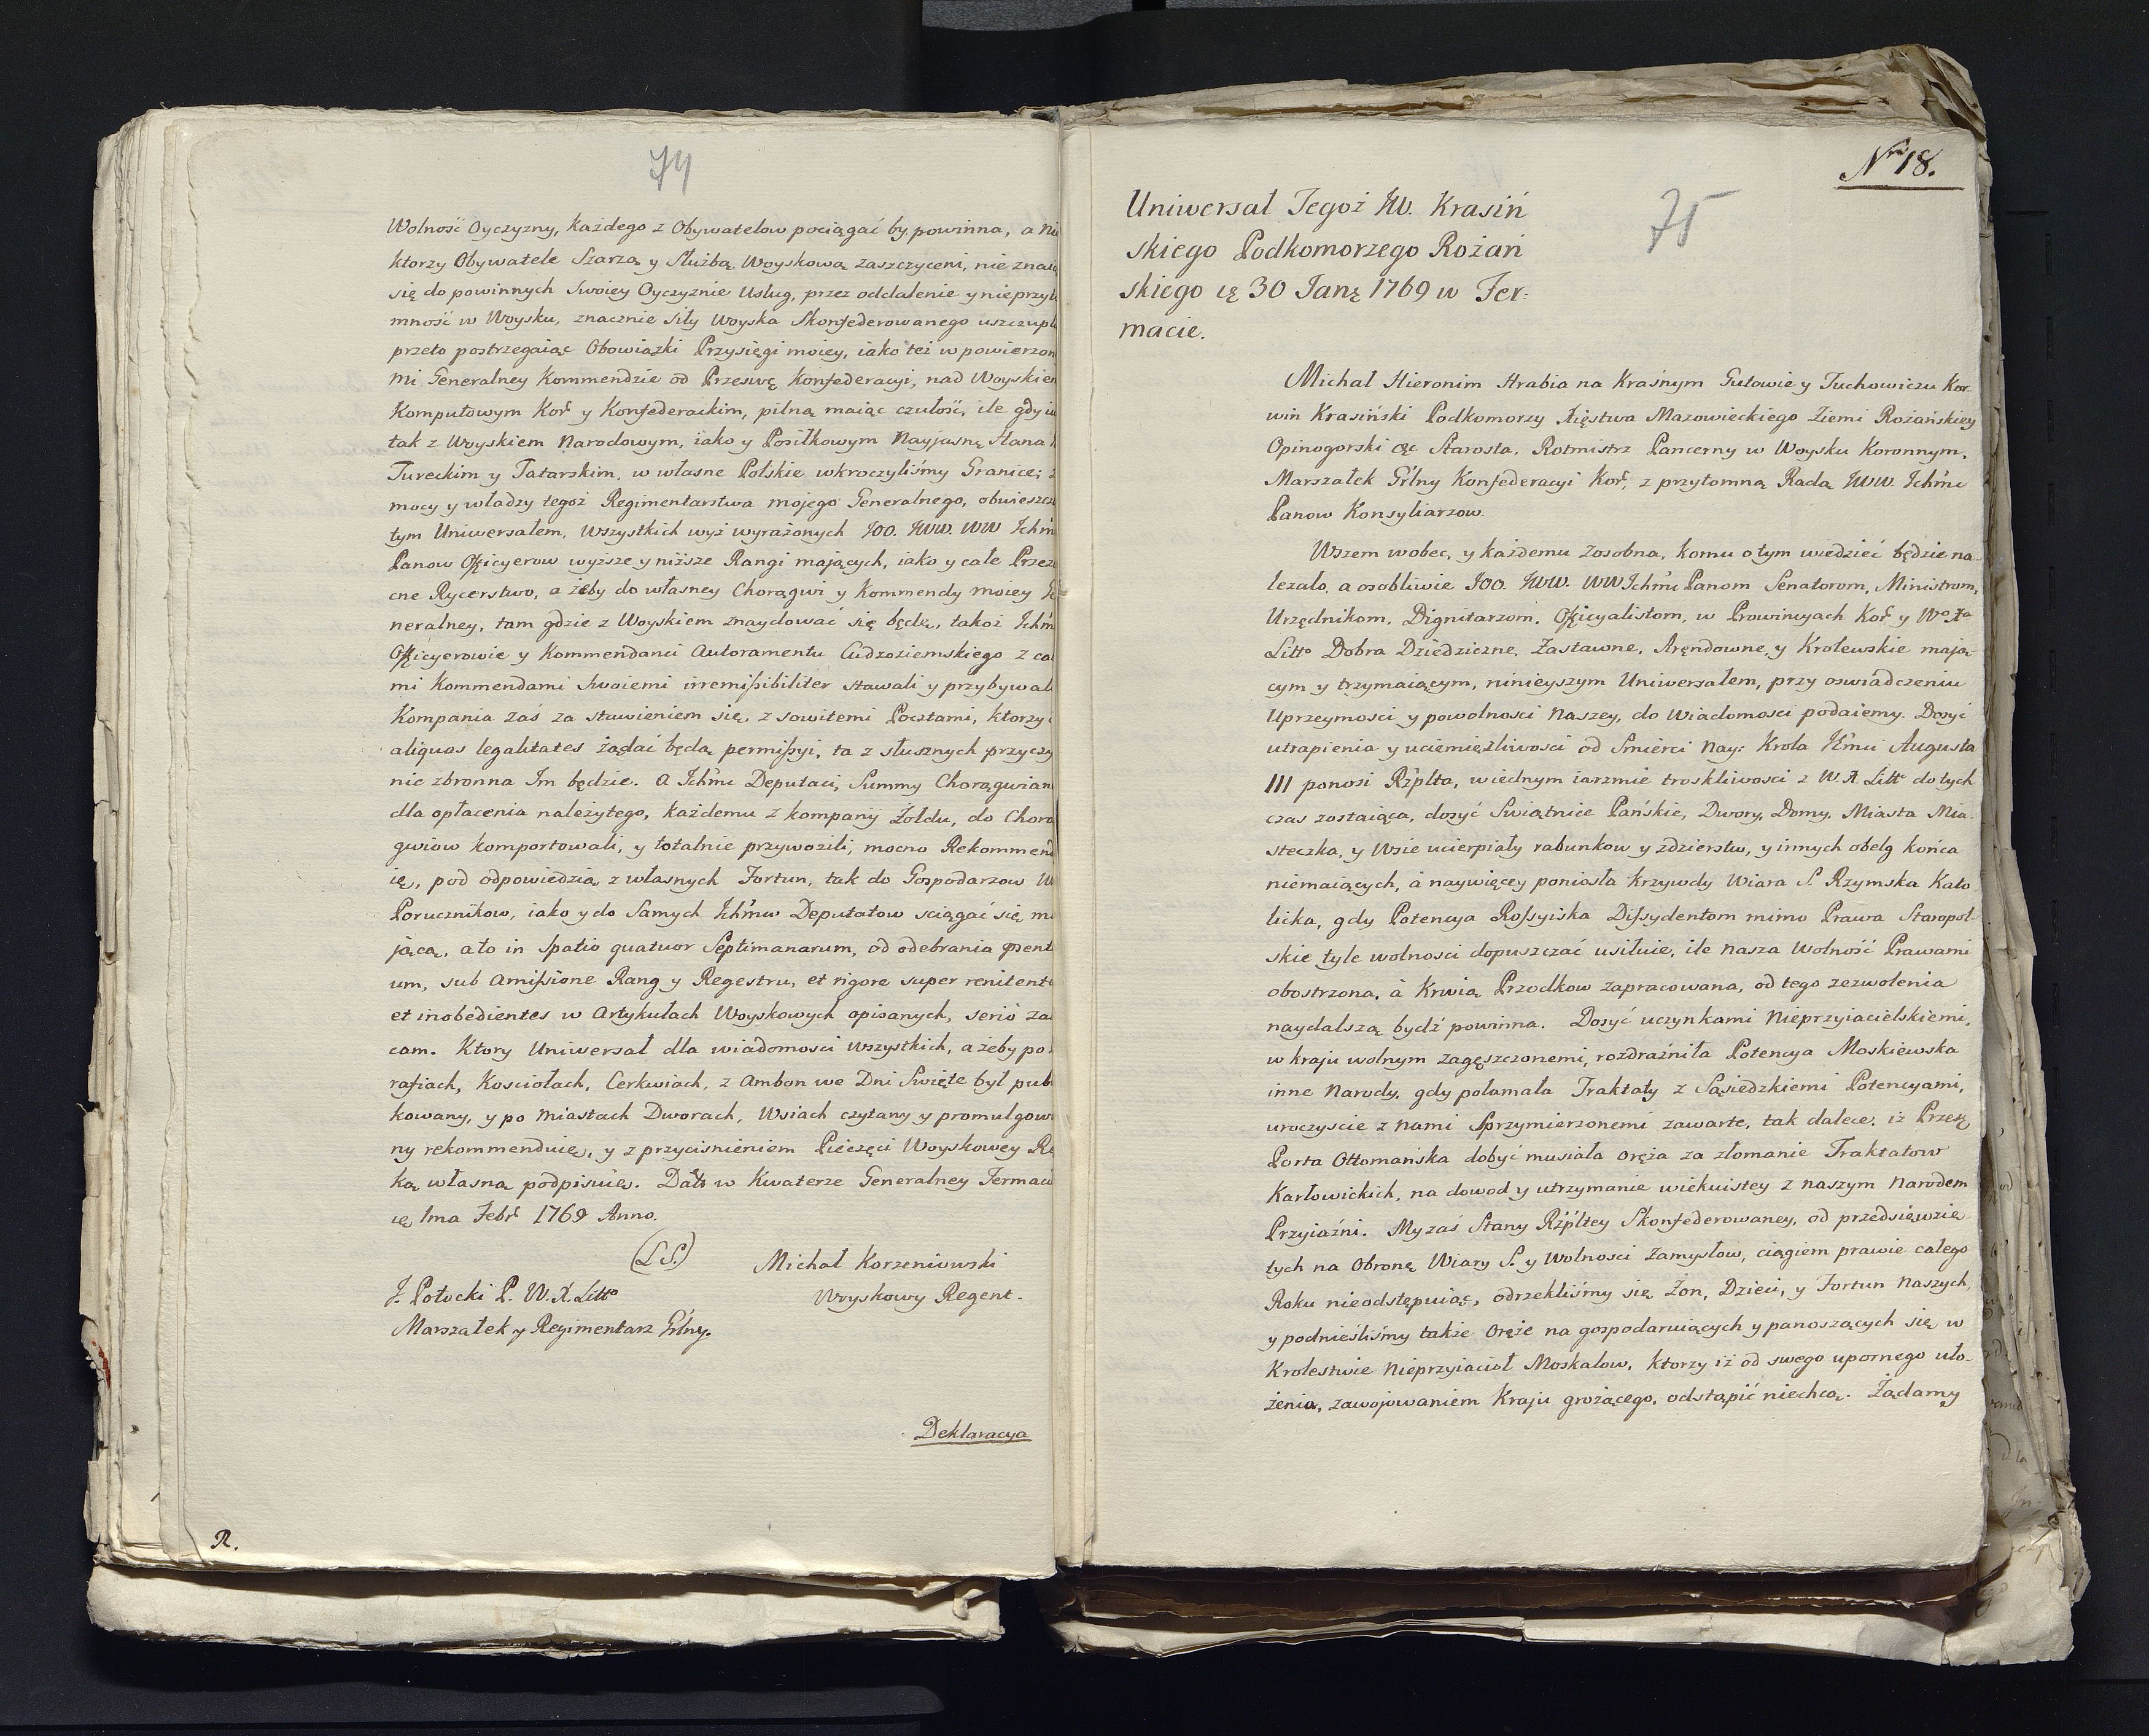 74
Wolność Oyczyzny, każdego z Obywatelow pociągać by powinna, a
ktorzy Obywatele Szarzą y Służbą Woyskową zaszczyceni, nie znaią
się do powinnych Swoiey Oyczyznie Usług, przez oddalenie y nieprzyto
mność w Woysku, znacznie siły Woyska Skonfederowanego uszczupl
przeto postrzegaiąc Obowiązki Przysięgi moiey, iako też w powierzon
mi Generalney Kommendzie od Przeswę Konfederacyi, nad Woyskiem
Komputowym Kor y Konfederackim, pilną maiąc czułość, ile gdy iu
tak z Woyskiem Narodowym, iako y Posiłkowym Nayjasnę Hana
Tureckim y Tatarskim, w własne Polskie wkroczyliśmy Granice; z
mocy y władzy tegoż Regimentarstwa mojego Generalnego, obwieszcz
tym Uniwersałem, wszystkich wyż wyrażonych JOO. JWW. WW Ichm
Panow Officyerow wyższe y niższe Rangi mających, iako y całe Prze
cne Rycerstwo, a żeby do własney Chorągwi y Kommendy moiey Ge
neralney, tam gdzie z Woyskiem znaydować się będę, takoż Ichm
Officyerowie y Kommendanci Autoramentu Cudzoziemskiego z ca
mi Kommendami swoiemi irremissibiliter stawali y przybywali
Kompania zaś za stawieniem się, z sowitemi Pocztami, ktorzy
aliquas legalitates żądać będą permissyi, ta z słusznych przyczy
nie zbronna Im będzie. A Ichmc Deputaci, Summy Chorągwian
dla opłacenia należytego, każdemu z kompanij Żołdu, do Chorą
gwiow komportowali, y totalnie przywozili, mocno Rekommend
ię, pod odpowiedzią z własnych Fortun, tak do Gospodarzow
Porucznikow, iako y do Samych Ichmw Deputatow sciągać się m
jącą, a to in Spatio quatuor Septimanarum, od odebrania psent
um, sub Amissione Rang y Regestru, et rigore super renitent
et inobedientes w Artykułach Woyskowych opisanych, serio za
cam. Ktory Uniwersał dla wiadomosci wszystkich, a żeby po
rafiach, Kosciołach, Cerkwiach, z Ambon we Dni Swięte był pub
kowany, y po Miastach Dworach, Wsiach czytany y promulgowa
ny rekommenduię, y z przycisnieniem Pieczęci Woyskowey Rę
ką własną podpisuię. Datt w Kwaterze Generalney Fermac
ię 1ma Febr 1769 Anno.
(L S.)
Michał Korzeniowski
Woyskowy Regent.
J. Potocki P. W. X. Litto
Marszałek y Regimentarz Grlny.
Deklaracya
R.
Nro 18.
75
Uniwersał Tegoż JW. Krasiń
skiego Podkomorzego Rożań
skiego ię 30 Janę 1769 w Fer:
macie.
Michał Hieronim Hrabia na Kraśnym Gutowie y Tuchowiczu Kor-
win Krasiński Podkomorzy Xięstwa Mazowieckiego Ziemi Rożańskiey
Opinogorski etc Starosta, Rotmistrz Pancerny w Woysku Koronnym,
Marszałek Grlny Konfederacyi Kor, z przytomną Radą JWW. Ichmc
Panow Konsyliarzow.
Wszem wobec, y każdemu zosobna, komu o tym wiedzieć będzie na-
lezało, a osobliwie JOO. JWW. WW Ichmc Panom Senatorom, Ministrom,
Urzędnikom, Dignitarzom, Officyalistom, w Prowincyach Kor y Wo Xa
Litto Dobra Dziedziczne, Zastawne, Arendowne, y Krolewskie mają-
cym y trzymaiącym, ninieyszym Uniwersałem, przy oswiadczeniu
Uprzeymosci y powolnosci Naszey, do Wiadomosci podaiemy. Dosyć
utrapienia y uciemięzliwosci od Smierci Nay: Krola Jmci Augusta
III ponosi Rzplta, wiednym iarzmie troskliwosci z W. X. Litt do tych
czas zostaiąca, dosyć Swiątnice Pańskie, Dwory, Domy, Miasta Mia-
steczka, y Wsie ucierpiały rabunkow y zdzierstw, y innych obelg końca
niemaiących, à naywięcey poniosła krzywdy Wiara S. Rzymska Kato-
licka, gdy Potencya Rossyiska Dissydentom mimo Prawa Staropol-
skie tyle wolnosci dopuszczać usiłuie, ile nasza Wolność Prawami
obostrzona, à Krwią Przodkow zapracowana, od tego zezwolenia
naydalszą bydź powinna. Dosyć uczynkami Nieprzyiacielskiemi,
w kraju wolnym zagęszczonemi, rozdrażniła Potencya Moskiewska
inne Narody, gdy połamała Traktaty z Sąsiedzkiemi Potencyami,
uroczyscie z nami Sprzymierzonemi zawarte, tak dalece, iż Przeę
Porta Ottomańska dobyć musiała oręża za złomanie Traktatow
Karłowickich, na dowod y utrzymanie wiekuistey z naszym Narodem
Przyiaźni. My zaś Stany Rzpltey Skonfederowaney, od przedsięwzię-
tych na Obronę Wiary S. y Wolnosci zamysłow, ciągiem prawie całego
Roku nieodstępuiąc, odrzekliśmy się Żon, Dzieci, y Fortun Naszych,
y podnieśliśmy także oręże na gospodaruiących y panoszących się w
Krolestwie Nieprzyiacioł Moskalow, ktorzy iż od swego upornego uło-
żenia, zawojowaniem Kraju grożącego, odstąpić niechcą. Żądamy